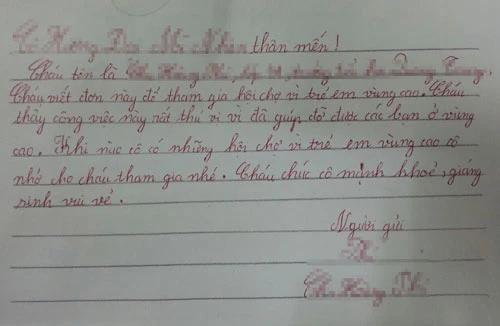 thân mến!
Cháu tên là
Cháu viết đơn này để tham gia hội chợ vì trẻ em vùng cao. Cháu
thấy công việc này rất thú vị vì đã giúp đỡ được các bạn ở vùng
cao. Khi nào cô có những hội chợ vì trẻ em vùng cao cô
nhớ cho cháu tham gia nhé. Cháu chúc cô mạnh khoẻ, giáng
sinh vui vẻ.
Người gửi